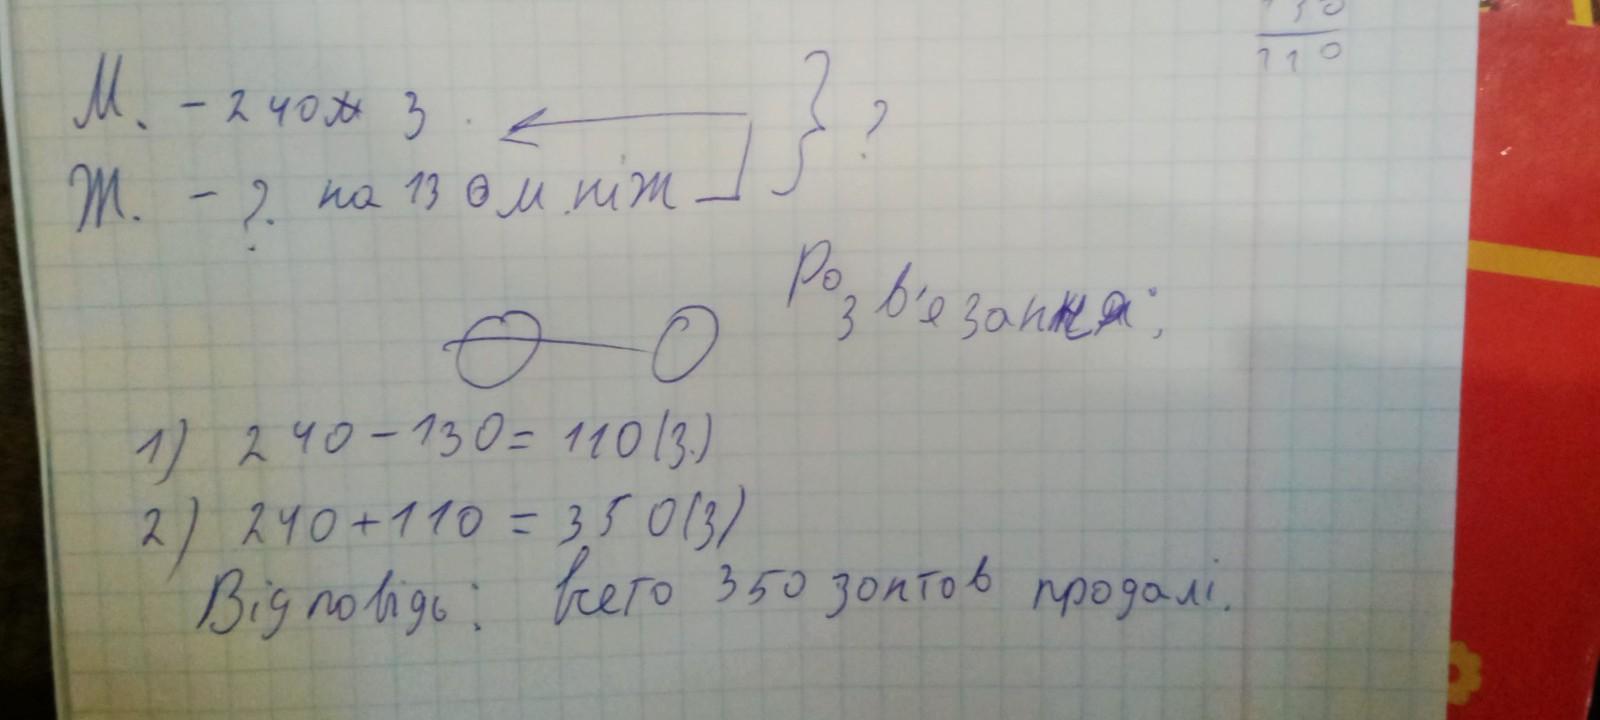 130
110
М. - 240 з
Ж. - ? на 130 м. ніж
?
Розв'язання:
1) 240 - 130 = 110 (з.)
2) 240 + 110 = 350 (з)
Відповідь: всего 350 зонтов продалі.